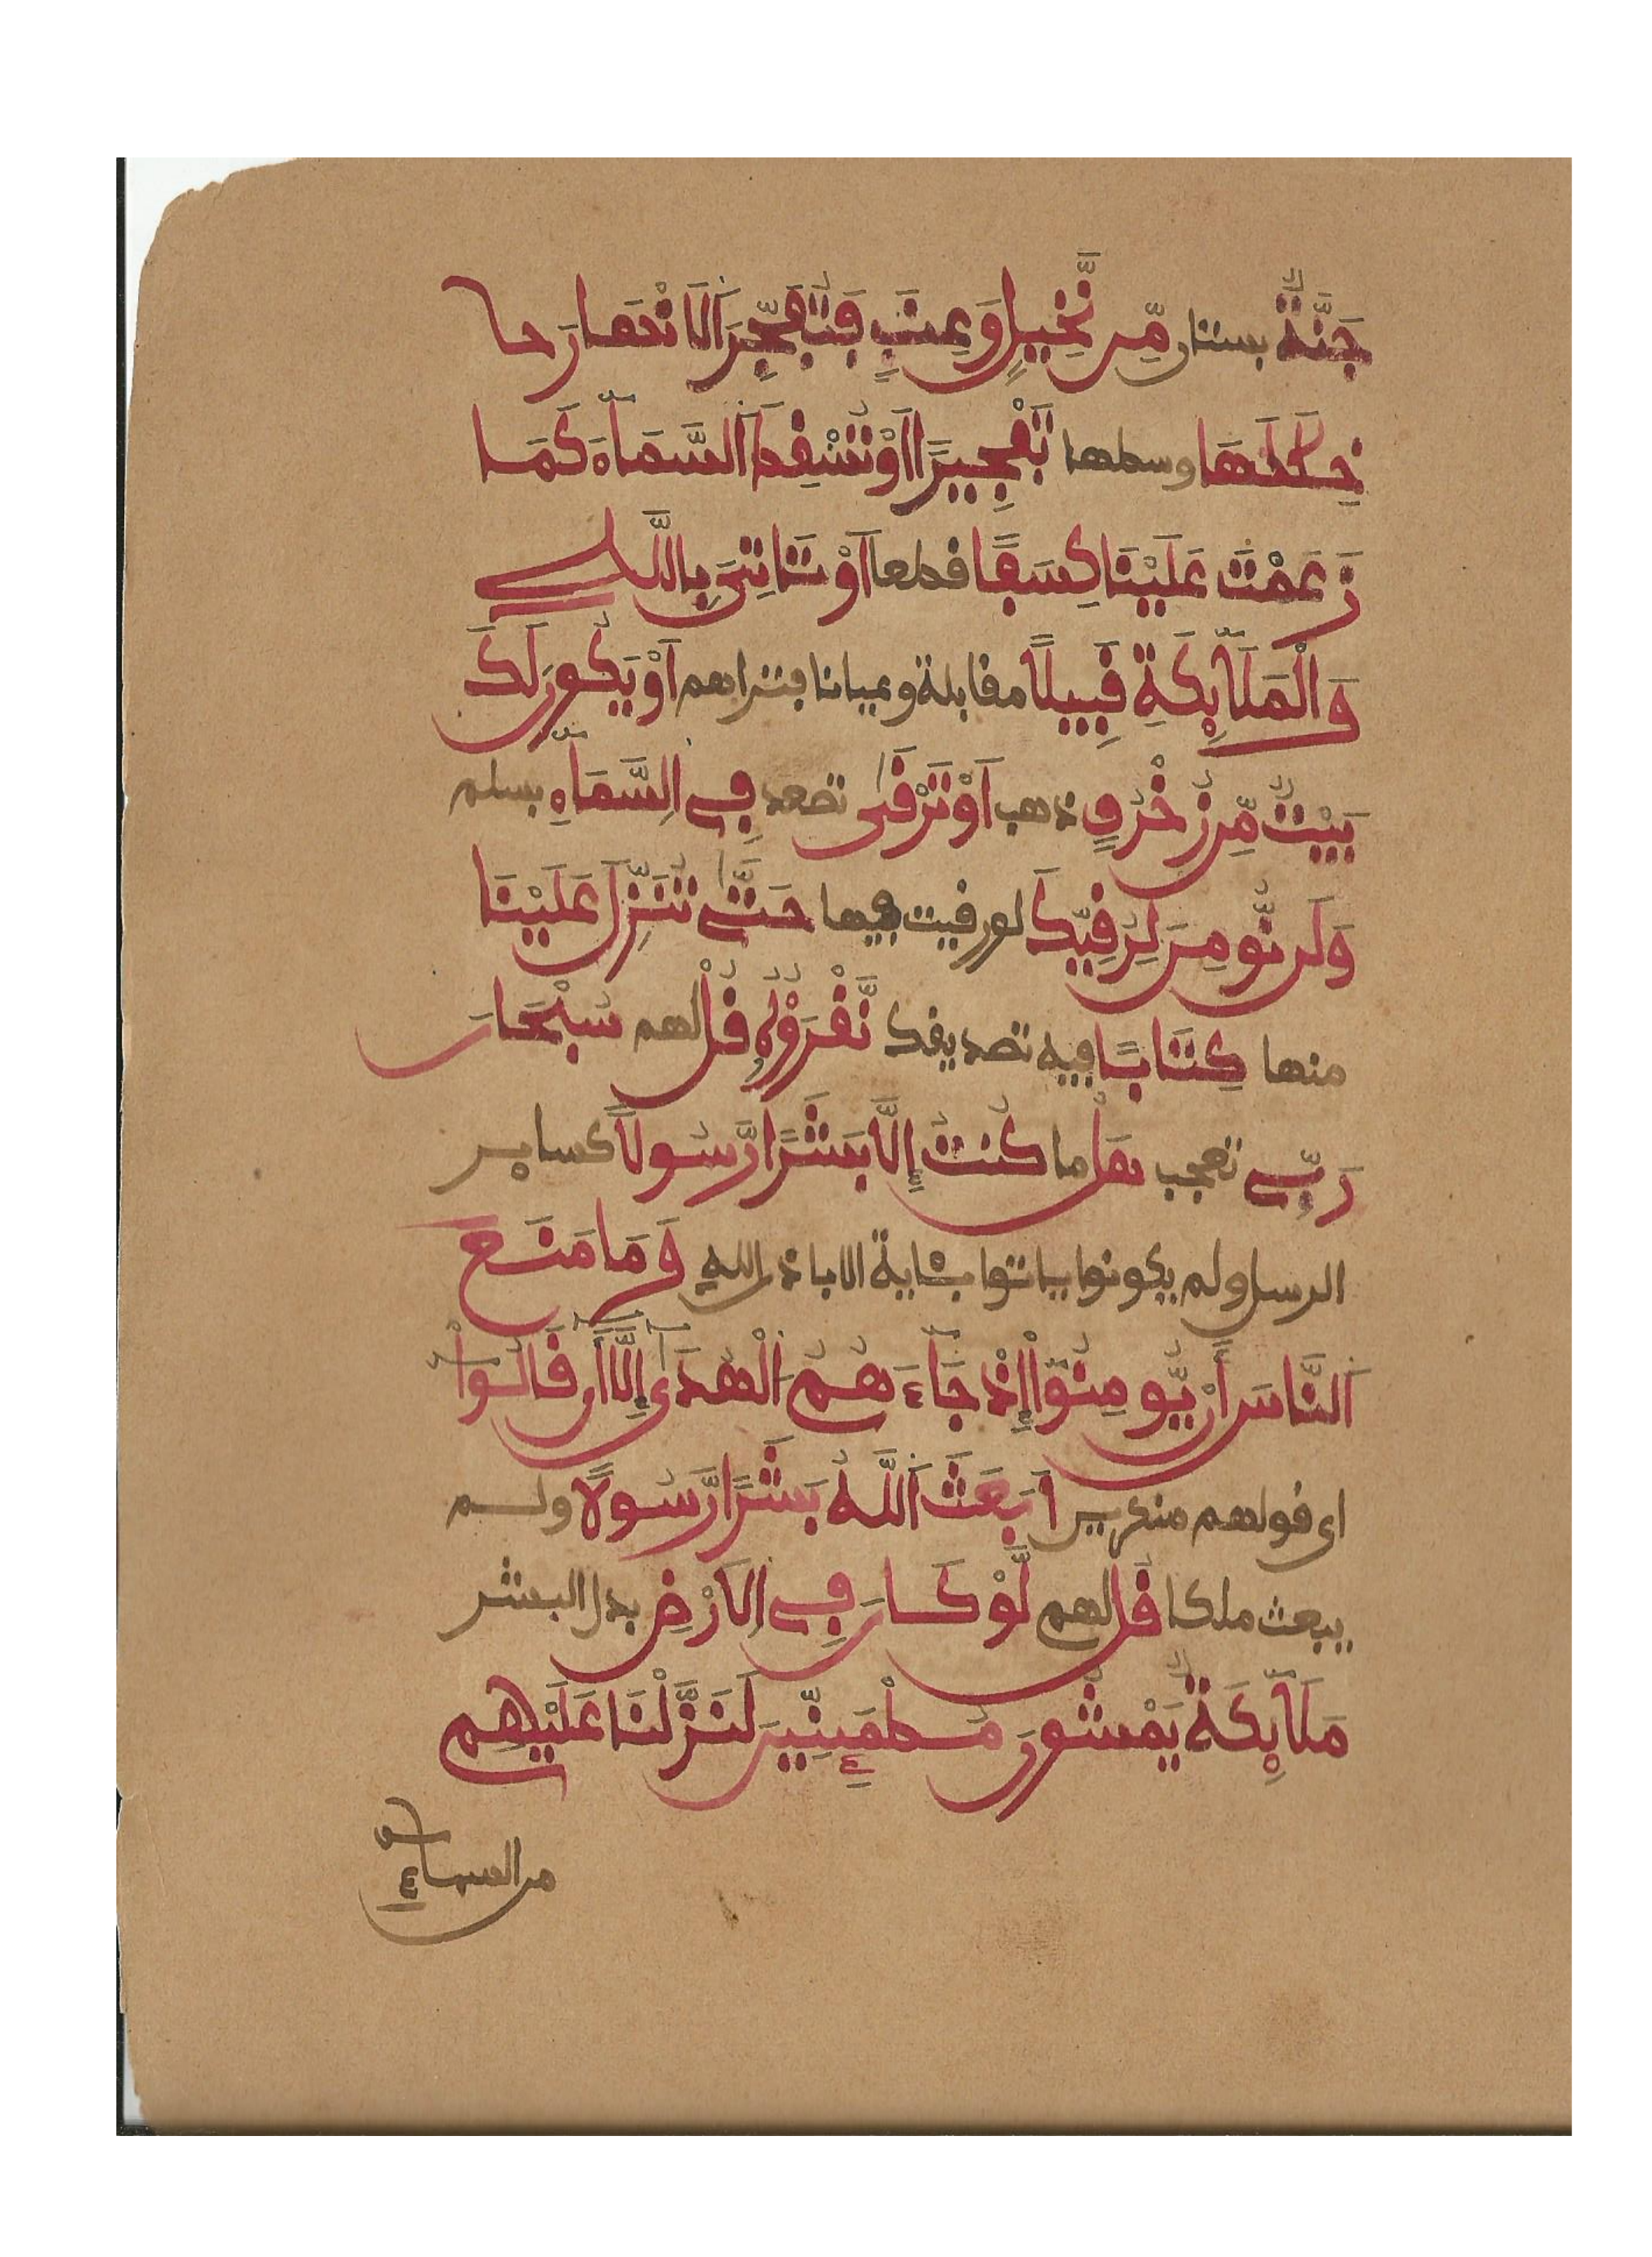 جَنَّةٌ بستان مِّن نَّخِيلٍ وَعِنَبٍ فَتُفَجِّرَ الَانْهَارَ خـ
خِلَٰلَهَا وسطها تَفْجِيرًا اَوْ تُسْقِطَ السَّمَآءَ كَمَا
زَعَمْتَ عَلَيْنَا كِسَفًا قطعا اَوْ تَاتِيَ بِاللَّهِ
وَالْمَلَٰٓئِكَةِ قَبِيلًا مقابلة وعيانا فنراهم اَوْ يَكُونَ لَكَ
بَيْتٌ مِّن زُخْرُفٍ ذهب اَوْ تَرْقَىٰ تصعد فِي السَّمَآءِ بسلم
وَلَن نُّومِنَ لِرُقِيِّكَ لو رقيت فيها حَتَّىٰ تُنَزِّلَ عَلَيْنَا
منها كِتَابًا فيه تصديقك نَّقْرَؤُهُ قُلْ لهم سُبْحَانَ
رَبِّي تعجب هَلْ ما كُنتُ إِلَّا بَشَرًا رَّسُولًا كساير
الرسل ولم يكونوا ياتوا بئاية الا باذن الله وَمَا مَنَعَ
النَّاسَ أَنْ يُّومِنُوٓاْ إِذْ جَآءَهُمُ الْهُدَىٰٓ إِلَّآ أَن قَالُوٓاْ
اى قولهم منكرين اَبَعَثَ اَللَّهُ بَشَرًا رَّسُولًا ولم
يبعث ملكا قُل لهم لَّوْ كَانَ فِي الَارْضِ بدل البشر
مَلَٰٓئِكَةٌ يَمْشُونَ مُطْمَئِنِّينَ لَنَزَّلْنَا عَلَيْهِم
من السماء